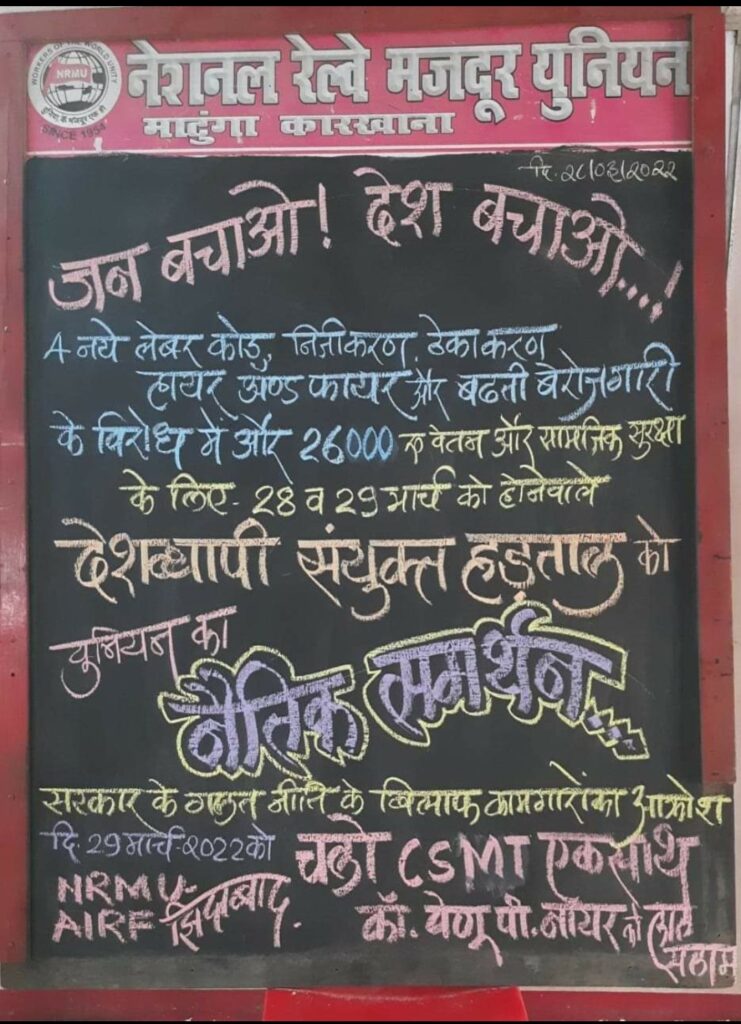 WORKERS OF THE WORLD UNITY
NRMU
दुनिया के मजदूर एक हो
SINCE 1954
नेशनल रेल्वे मजदूर युनियन
माटुंगा कारखाना
दि. २८/०३/२०२२
जन बचाओ! देश बचाओ...!
4 नये लेबर कोड, निजीकरण, ठेकाकरण
हायर अँण्ड फायर और बढती बेरोजगारी
के विरोध में और 26000 रु वेतन और सामाजिक सुरक्षा
के लिए- 28 व 29 मार्च को होनेवाले
देशव्यापी संयुक्त हड़ताल को
युनियन का
नैतिक समर्थन...
सरकार के गलत नीति के खिलाफ कामगारोंका आक्रोश
दि. 29 मार्च-2022 को चलो CSMT एकसाथ
NRMU-
AIRF झिंदाबाद.
कॉ. वेणू पी. नायर को लाल
सलाम